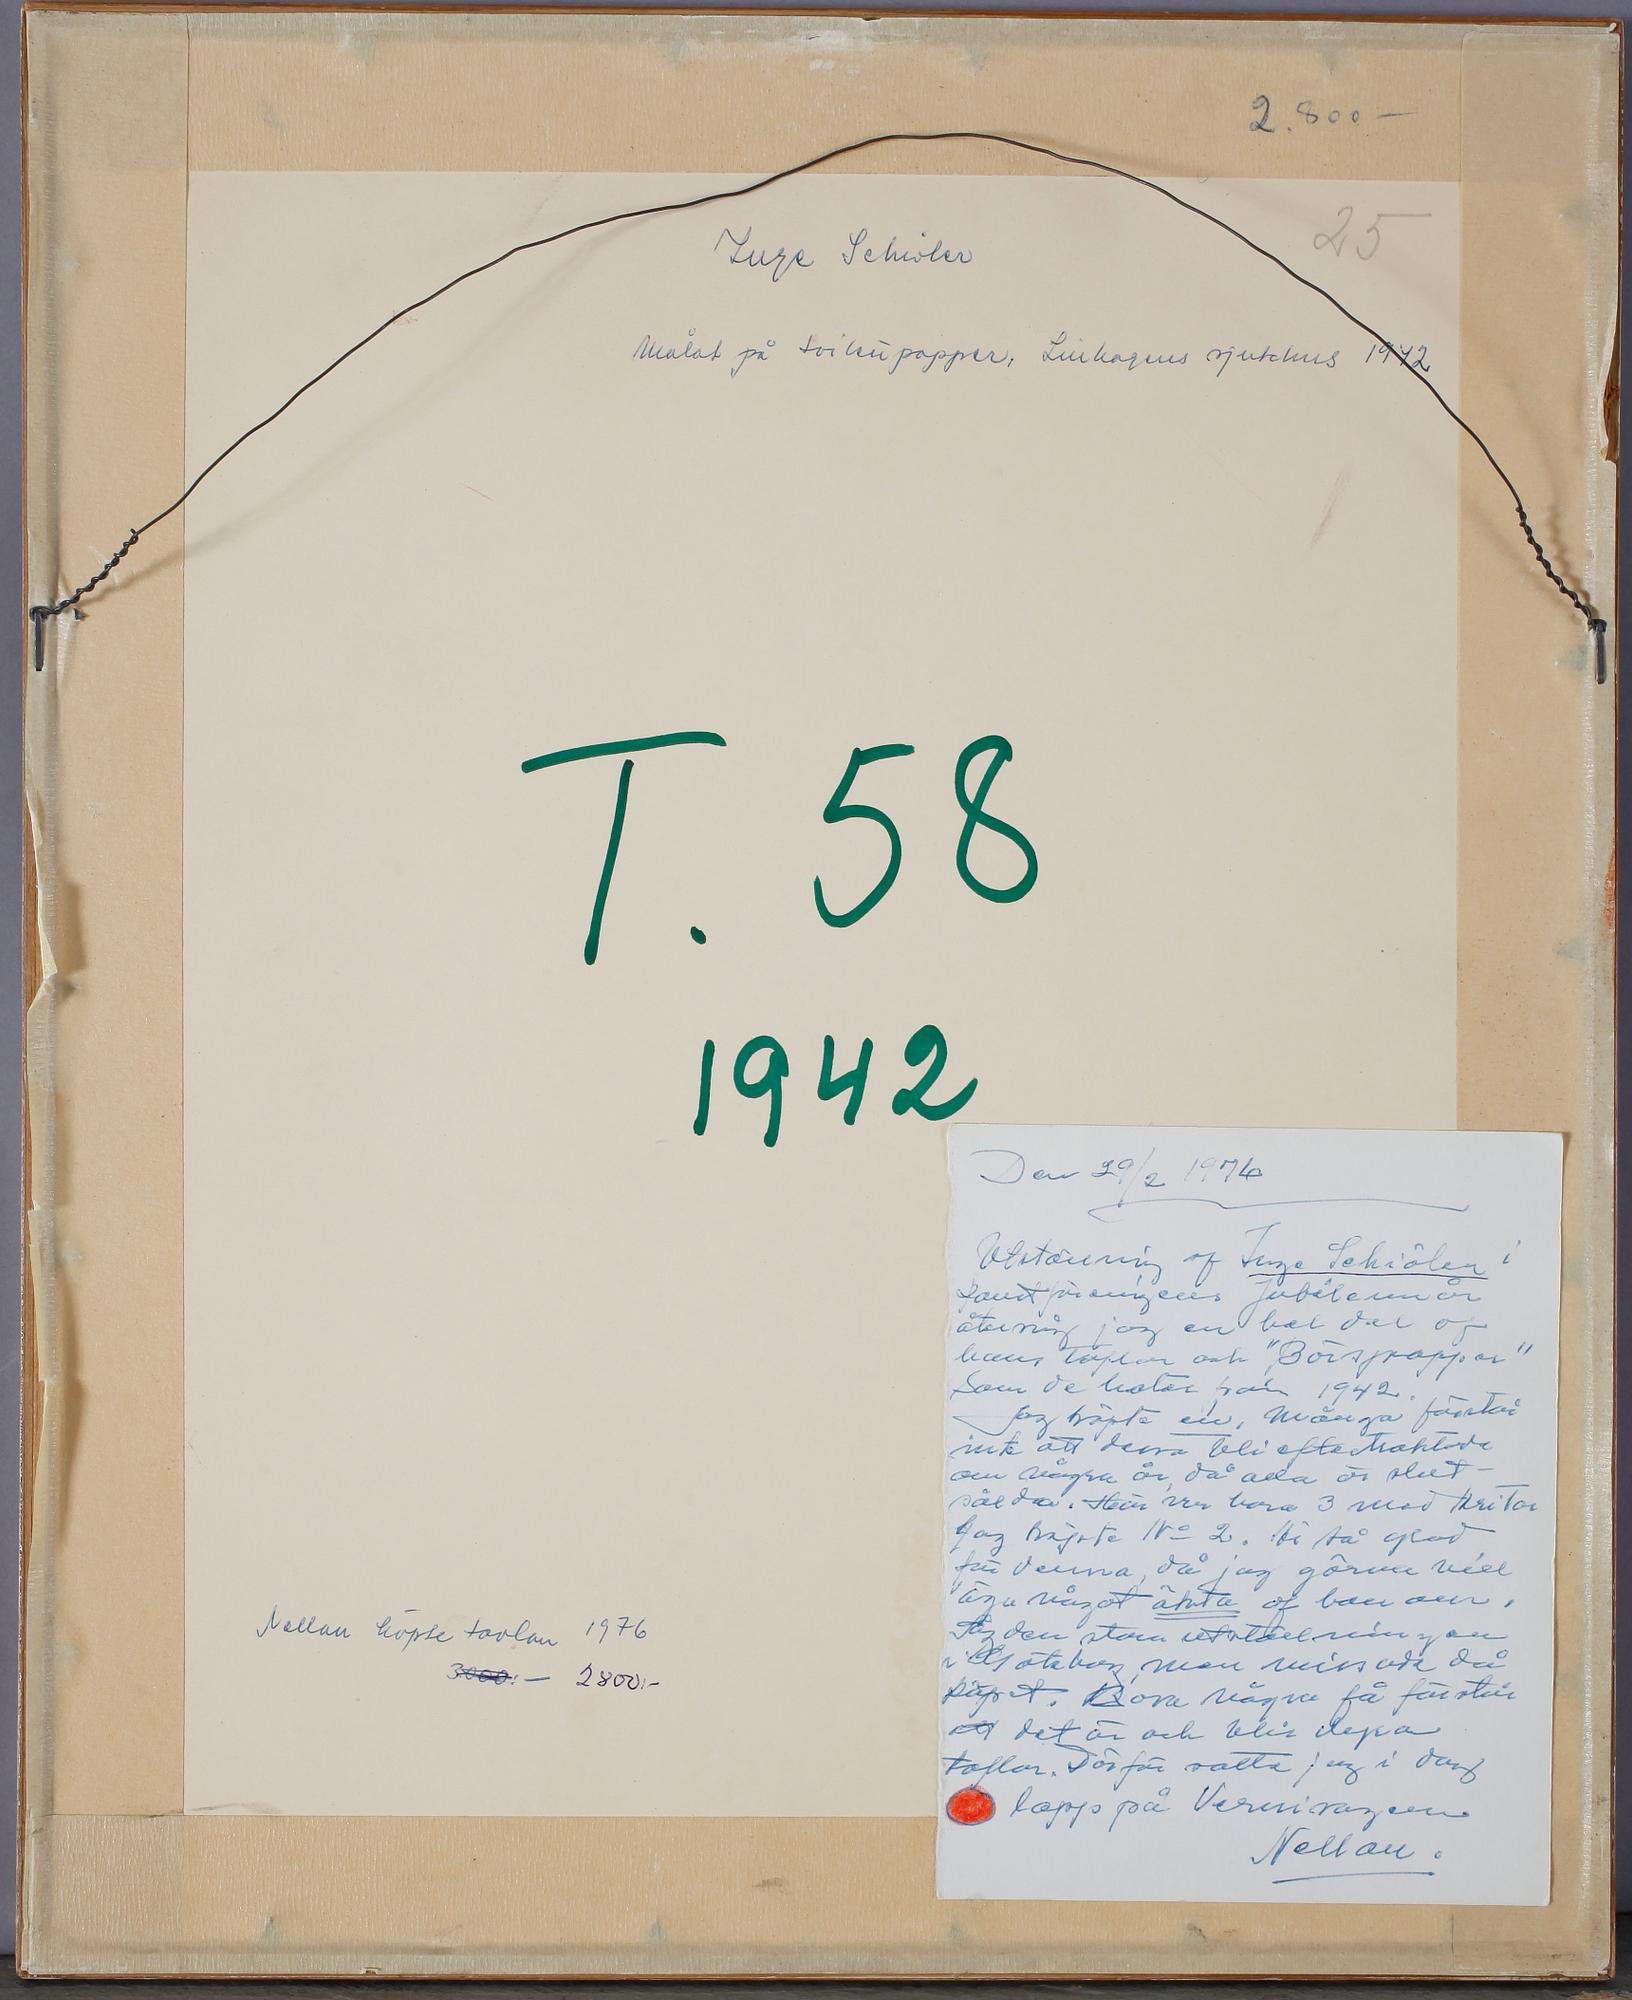 2.800 —
25
Inge Schiöler
Målat på  Lillhagens sjukhus 1942
T. 58
1942
Den 29/2 1976
Utställning af Inge Schiöler i
Konstföreningens Jubileumår
återsåg jag en hel del af
hans taflor och "Börspapper"
som de heter från 1942.
Jag köpte en, många förstår
inte att dessa bli eftertraktade
om några år, då alla är slut-
sålda. var bara 3 med kritor
Jag köpte No 2. så glad
för denna, då jag gärna vill
äga något äkta af honom.
Såg den stora utställningen
i Göteborg, men missade då
köpet. Bara några få förstår
att det är och blir dyra
taflor. Därför satte jag i dag
lapp på Vernisagen
Nellan.
Nellan köpte tavlan 1976
3000:— 2800:-